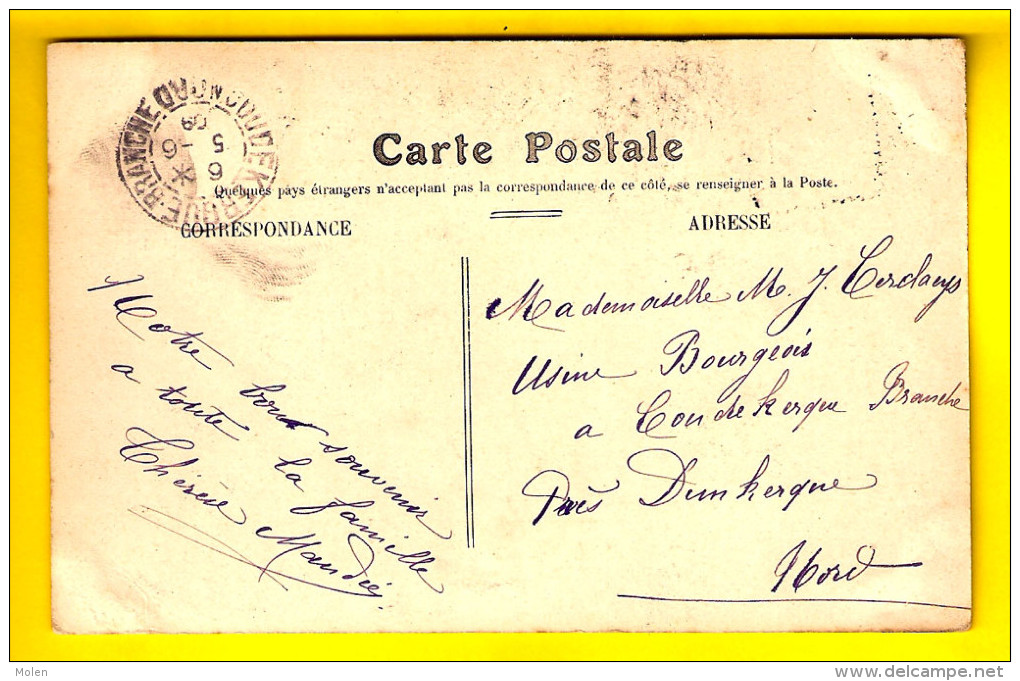 Carte Postale
Quelques pays étrangers n'acceptent pas la correspondance de ce côté, se renseigner à la Poste.
CORRESPONDANCE
ADRESSE
Notre bon souvenir
a toute la famille
Thérèse
Mademoiselle M. J.
Usine Bourgeois
a Coudekerque Branche
Près Dunkerque
Nord
COUDEKERQUE-BRANCHE NORD
6
5 -6
09
Molen
delcampe.net